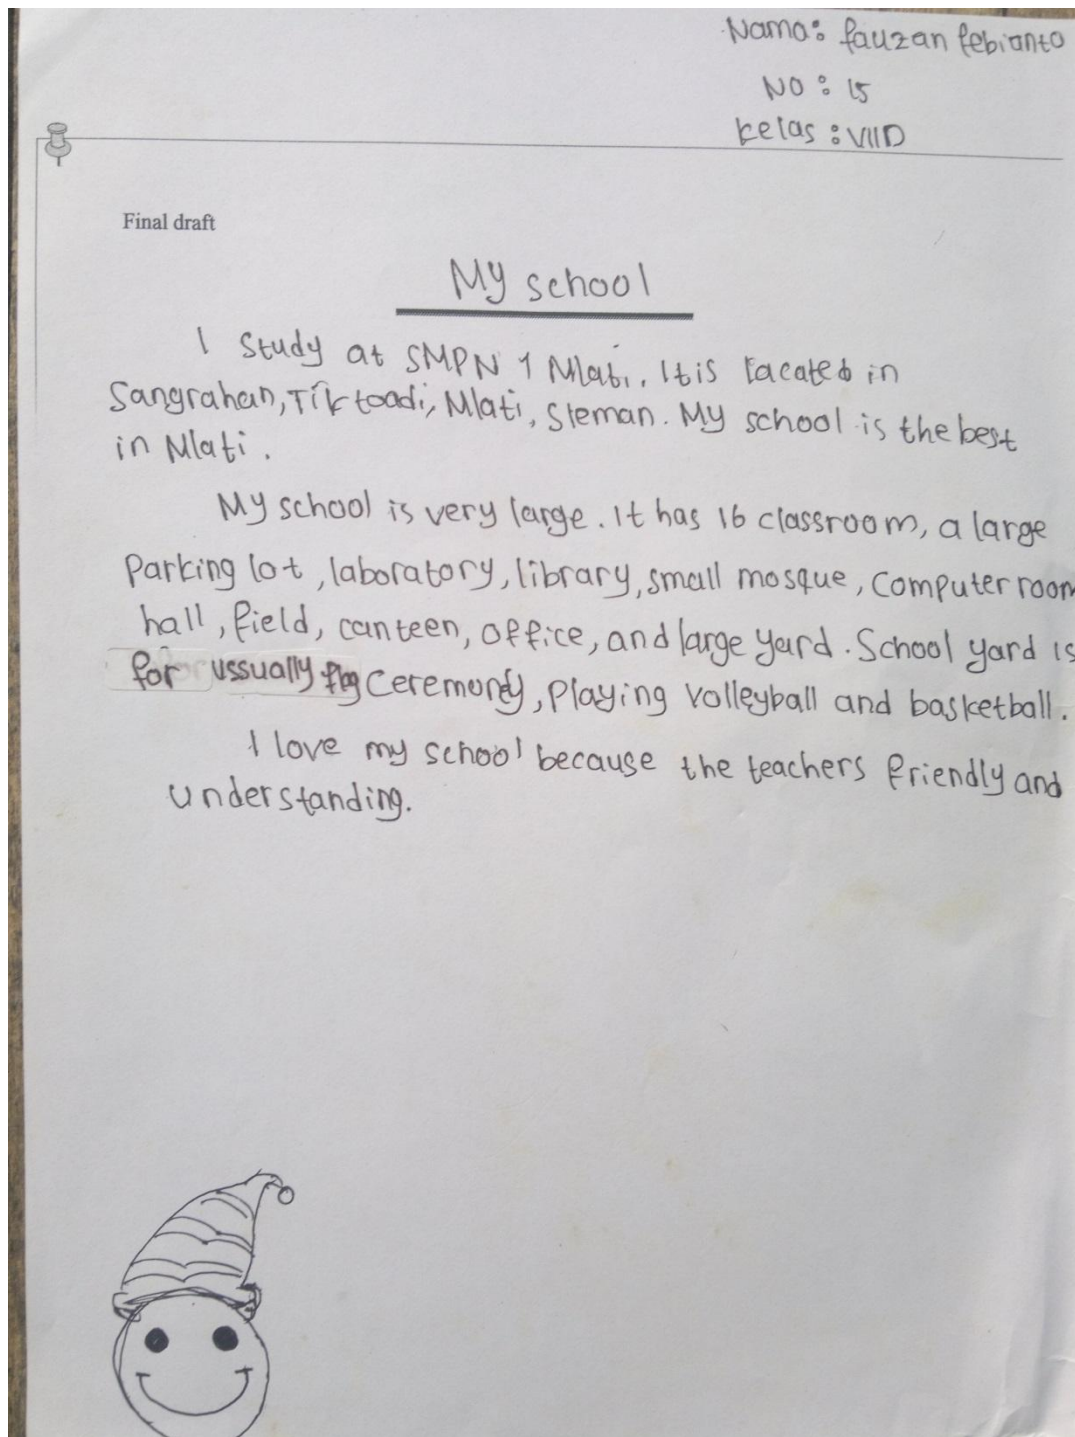 Nama: fauzan febianto
No: 15
kelas: VIID
Final draft
My school
I study at SMPN 1 Mlati. It is lacated in
Sangrahan, Tirtoadi, Mlati, Sleman. My school is the best
in Mlati.
My school is very large. It has 16 classroom, a large
Parking lot, laboratory, library, small mosque, computer room
hall, field, canteen, office, and large yard. School yard is
for ussually flag ceremony, playing volleyball and basketball.
I love my school because the teachers friendly and
understanding.